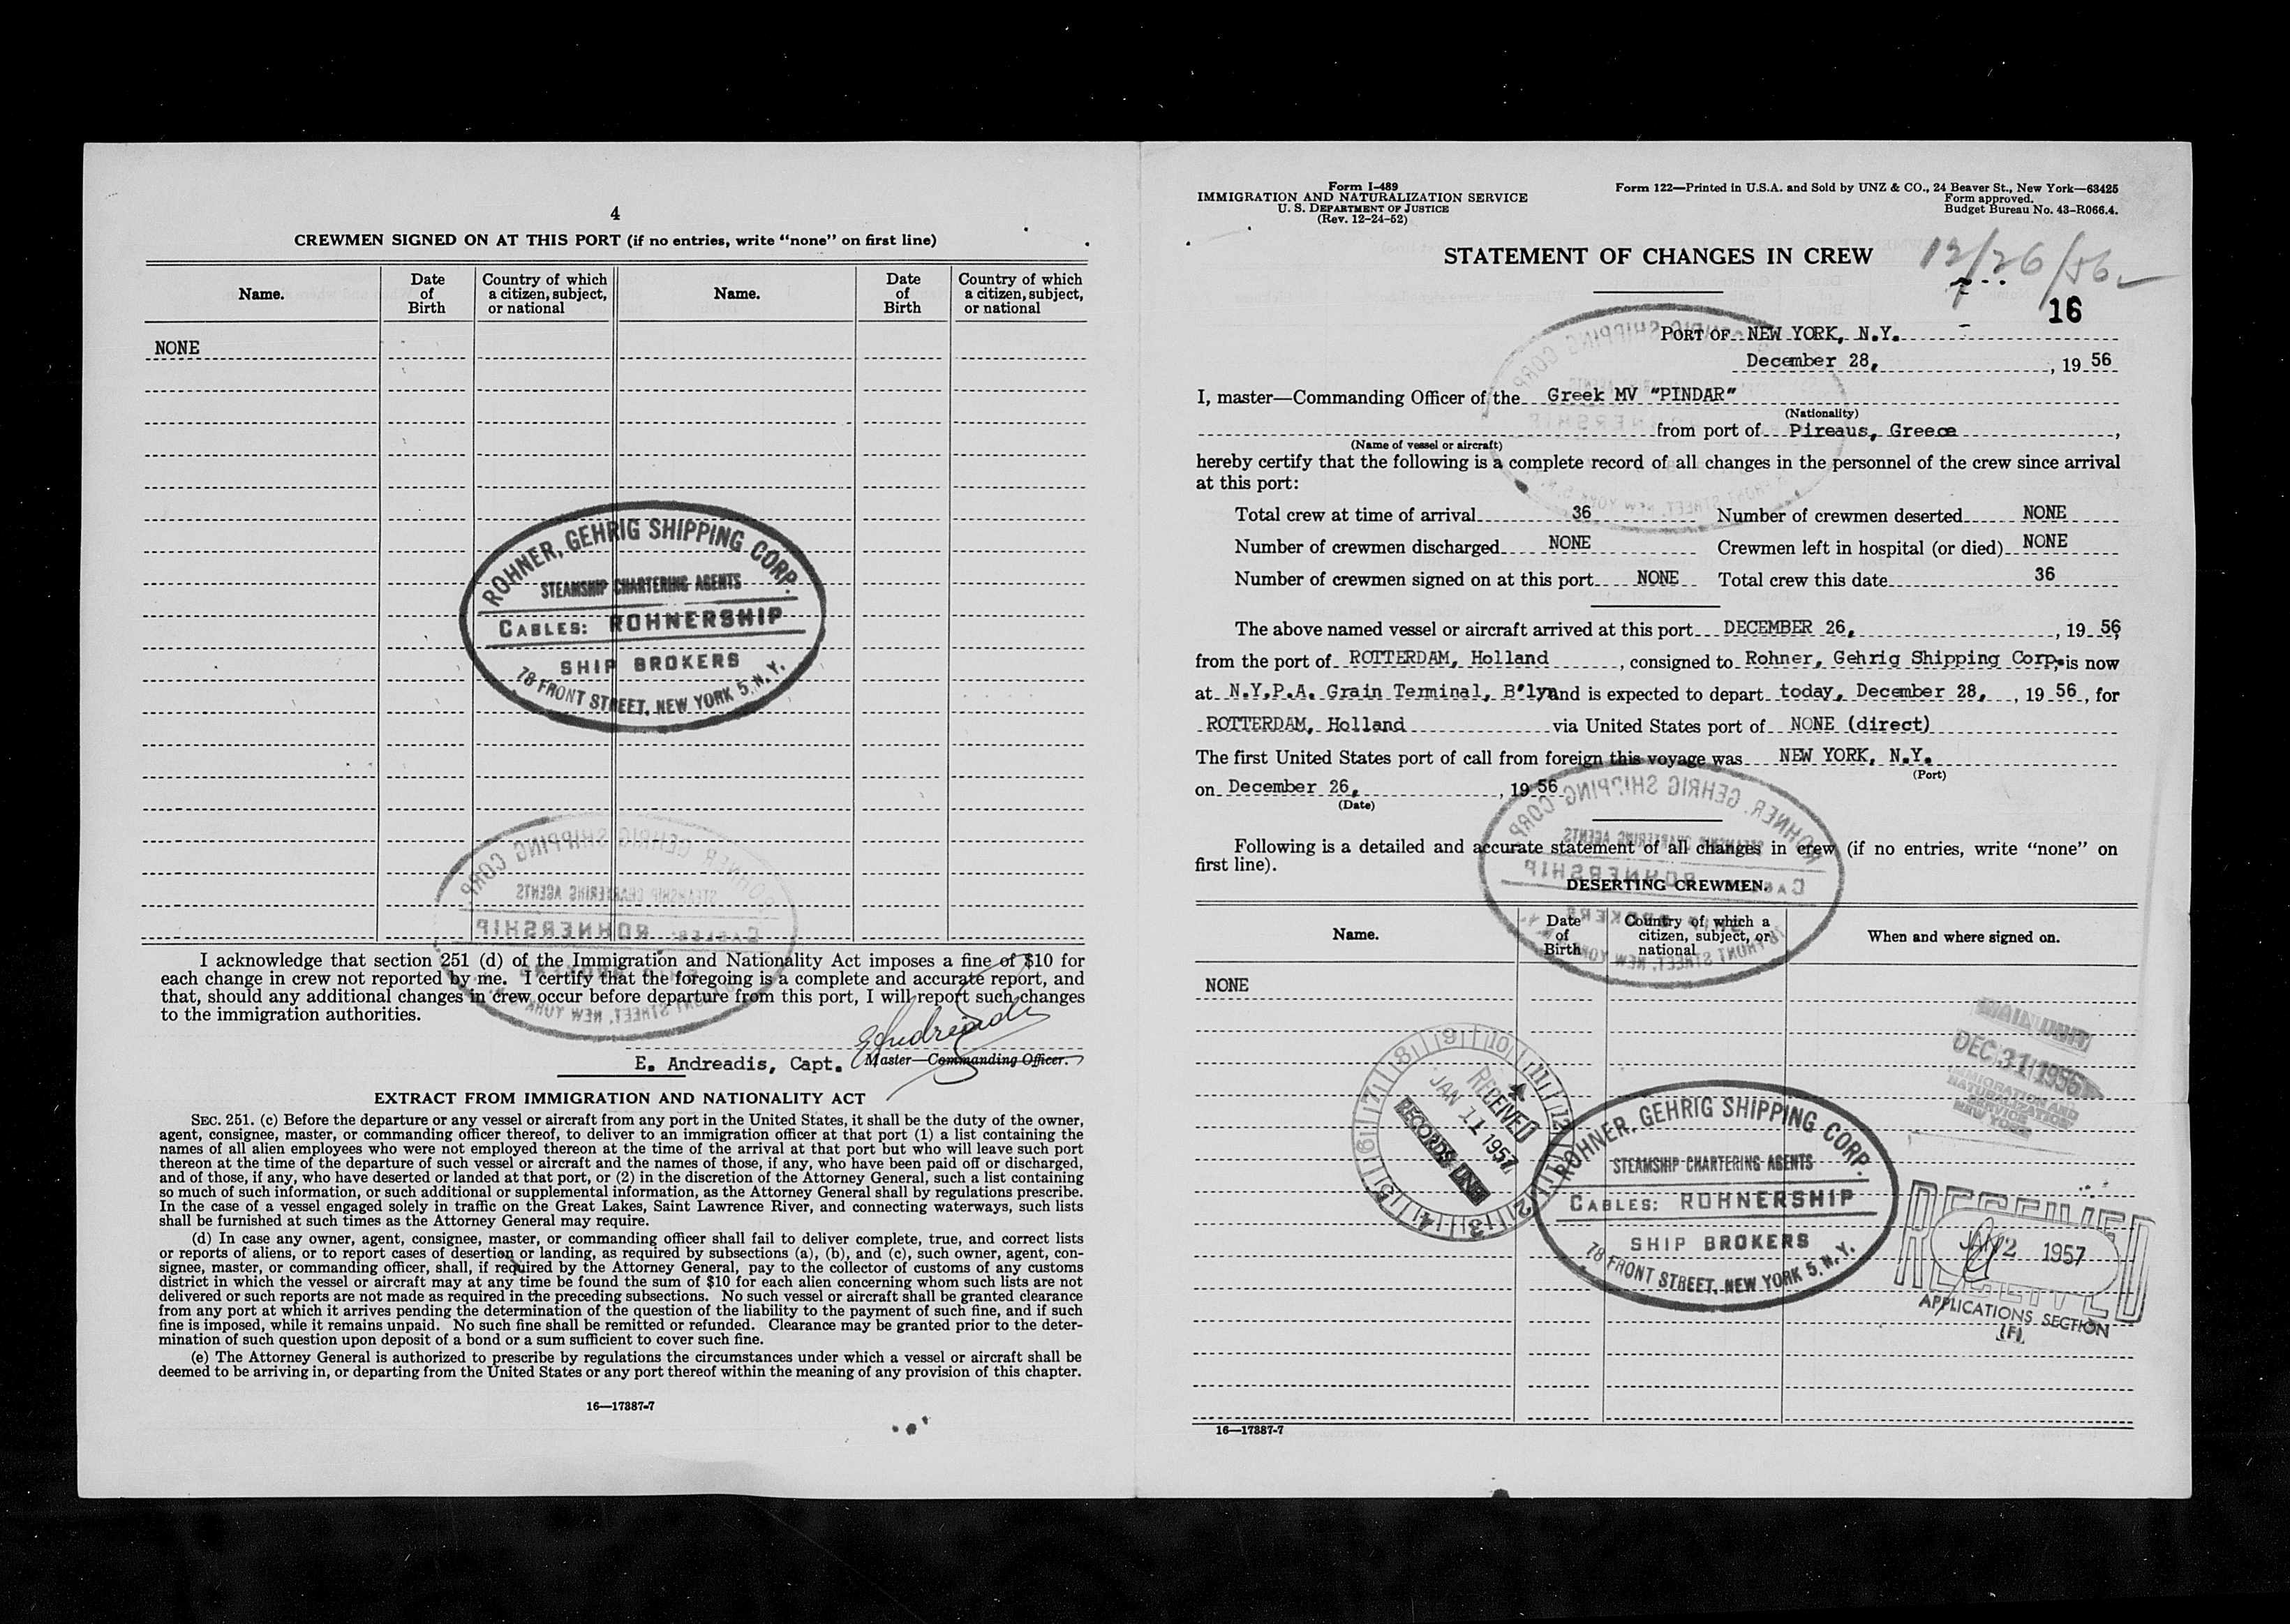 4
CREWMEN SIGNED ON AT THIS PORT (if no entries, write “none” on first line)
Name.
Date of Birth
Country of which a citizen, subject, or national
Name.
Date of Birth
Country of which a citizen, subject, or national
NONE
ROHNER, GEHRIG SHIPPING CORP.
STEAMSHIP CHARTERING AGENTS
CABLES: ROHNERSHIP
SHIP BROKERS
78 FRONT STREET, NEW YORK 5, N.Y.
I acknowledge that section 251 (d) of the Immigration and Nationality Act imposes a fine of $10 for
each change in crew not reported by me. I certify that the foregoing is a complete and accurate report, and
that, should any additional changes in crew occur before departure from this port, I will report such changes
to the immigration authorities.
E Andreadis
E. Andreadis, Capt. Master—Commanding Officer.
EXTRACT FROM IMMIGRATION AND NATIONALITY ACT
SEC. 251. (c) Before the departure or any vessel or aircraft from any port in the United States, it shall be the duty of the owner,
agent, consignee, master, or commanding officer thereof, to deliver to an immigration officer at that port (1) a list containing the
names of all alien employees who were not employed thereon at the time of the arrival at that port but who will leave such port
thereon at the time of the departure of such vessel or aircraft and the names of those, if any, who have been paid off or discharged,
and of those, if any, who have deserted or landed at that port, or (2) in the discretion of the Attorney General, such a list containing
so much of such information, or such additional or supplemental information, as the Attorney General shall by regulations prescribe.
In the case of a vessel engaged solely in traffic on the Great Lakes, Saint Lawrence River, and connecting waterways, such lists
shall be furnished at such times as the Attorney General may require.
(d) In case any owner, agent, consignee, master, or commanding officer shall fail to deliver complete, true, and correct lists
or reports of aliens, or to report cases of desertion or landing, as required by subsections (a), (b), and (c), such owner, agent, con-
signee, master, or commanding officer, shall, if required by the Attorney General, pay to the collector of customs of any customs
district in which the vessel or aircraft may at any time be found the sum of $10 for each alien concerning whom such lists are not
delivered or such reports are not made as required in the preceding subsections. No such vessel or aircraft shall be granted clearance
from any port at which it arrives pending the determination of the question of the liability to the payment of such fine, and if such
fine is imposed, while it remains unpaid. No such fine shall be remitted or refunded. Clearance may be granted prior to the deter-
mination of such question upon deposit of a bond or a sum sufficient to cover such fine.
(e) The Attorney General is authorized to prescribe by regulations the circumstances under which a vessel or aircraft shall be
deemed to be arriving in, or departing from the United States or any port thereof within the meaning of any provision of this chapter.
16—17887-7
Form I-489
IMMIGRATION AND NATURALIZATION SERVICE
U. S. DEPARTMENT OF JUSTICE
(Rev. 12-24-52)
Form 122—Printed in U.S.A. and Sold by UNZ & CO., 24 Beaver St., New York—63425
Form approved.
Budget Bureau No. 43-R066.4.
STATEMENT OF CHANGES IN CREW
12/26/56
16
PORT OF NEW YORK, N.Y.
December 28, , 19 56
I, master—Commanding Officer of the Greek MV "PINDAR"
(Nationality)
from port of Pireaus, Greece ,
(Name of vessel or aircraft)
hereby certify that the following is a complete record of all changes in the personnel of the crew since arrival
at this port:
Total crew at time of arrival 36 Number of crewmen deserted NONE
Number of crewmen discharged NONE Crewmen left in hospital (or died) NONE
Number of crewmen signed on at this port NONE Total crew this date 36
The above named vessel or aircraft arrived at this port DECEMBER 26, , 19 56,
from the port of ROTTERDAM, Holland , consigned to Rohner, Gehrig Shipping Corp, is now
at N.Y.P.A. Grain Terminal, B'lyn and is expected to depart today, December 28, , 19 56 , for
ROTTERDAM, Holland via United States port of NONE (direct)
The first United States port of call from foreign this voyage was NEW YORK, N.Y.
(Port)
on December 26, , 19 56
(Date)
Following is a detailed and accurate statement of all changes in crew (if no entries, write “none” on
first line).
DESERTING CREWMEN.
Name.
Date of Birth
Country of which a citizen, subject, or national
When and where signed on.
NONE
MAIN UNIT
DEC 31 1956
IMMIGRATION AND
NATURALIZATION
SERVICE
NEW YORK
8 9 10 11 12 1 2 3 4 5 6 7
RECEIVED
JAN 11 1957
RECORDS UNIT
ROHNER, GEHRIG SHIPPING CORP.
STEAMSHIP CHARTERING AGENTS
CABLES: ROHNERSHIP
SHIP BROKERS
78 FRONT STREET, NEW YORK 5, N.Y.
RECEIVED
JAN 2 1957
RECEIVED
APPLICATIONS SECTION
(F)
16—17887-7